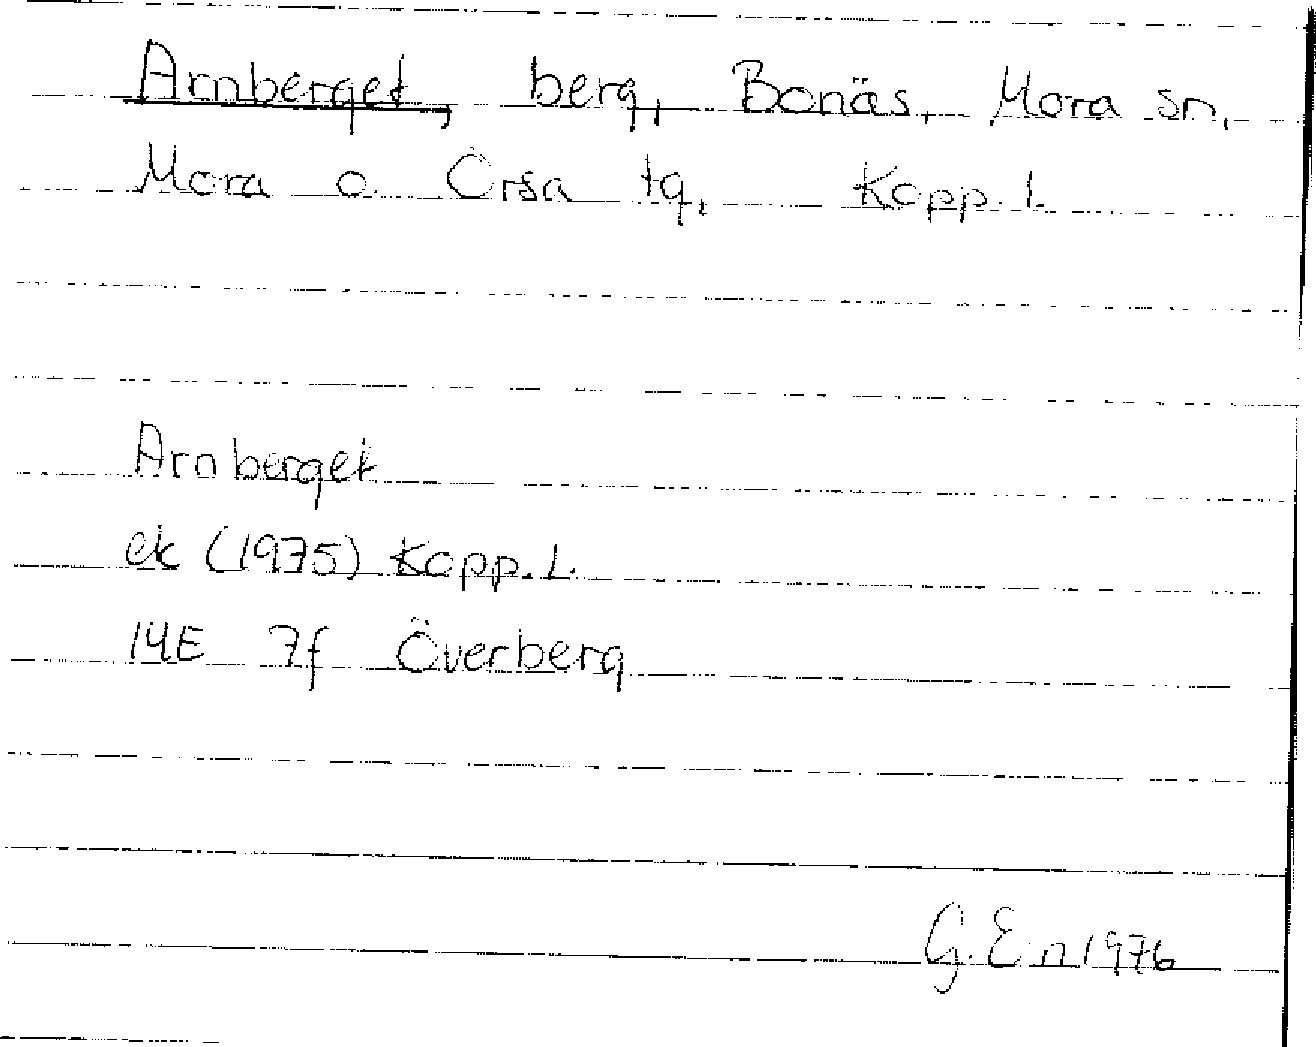 Arnberget, berg, Bonäs, Mora sn,
Mora o. Orsa tg, Kopp. l.
Arnberget
ek (1975) Kopp. L.
14E 7f Överberg
G. En 1976